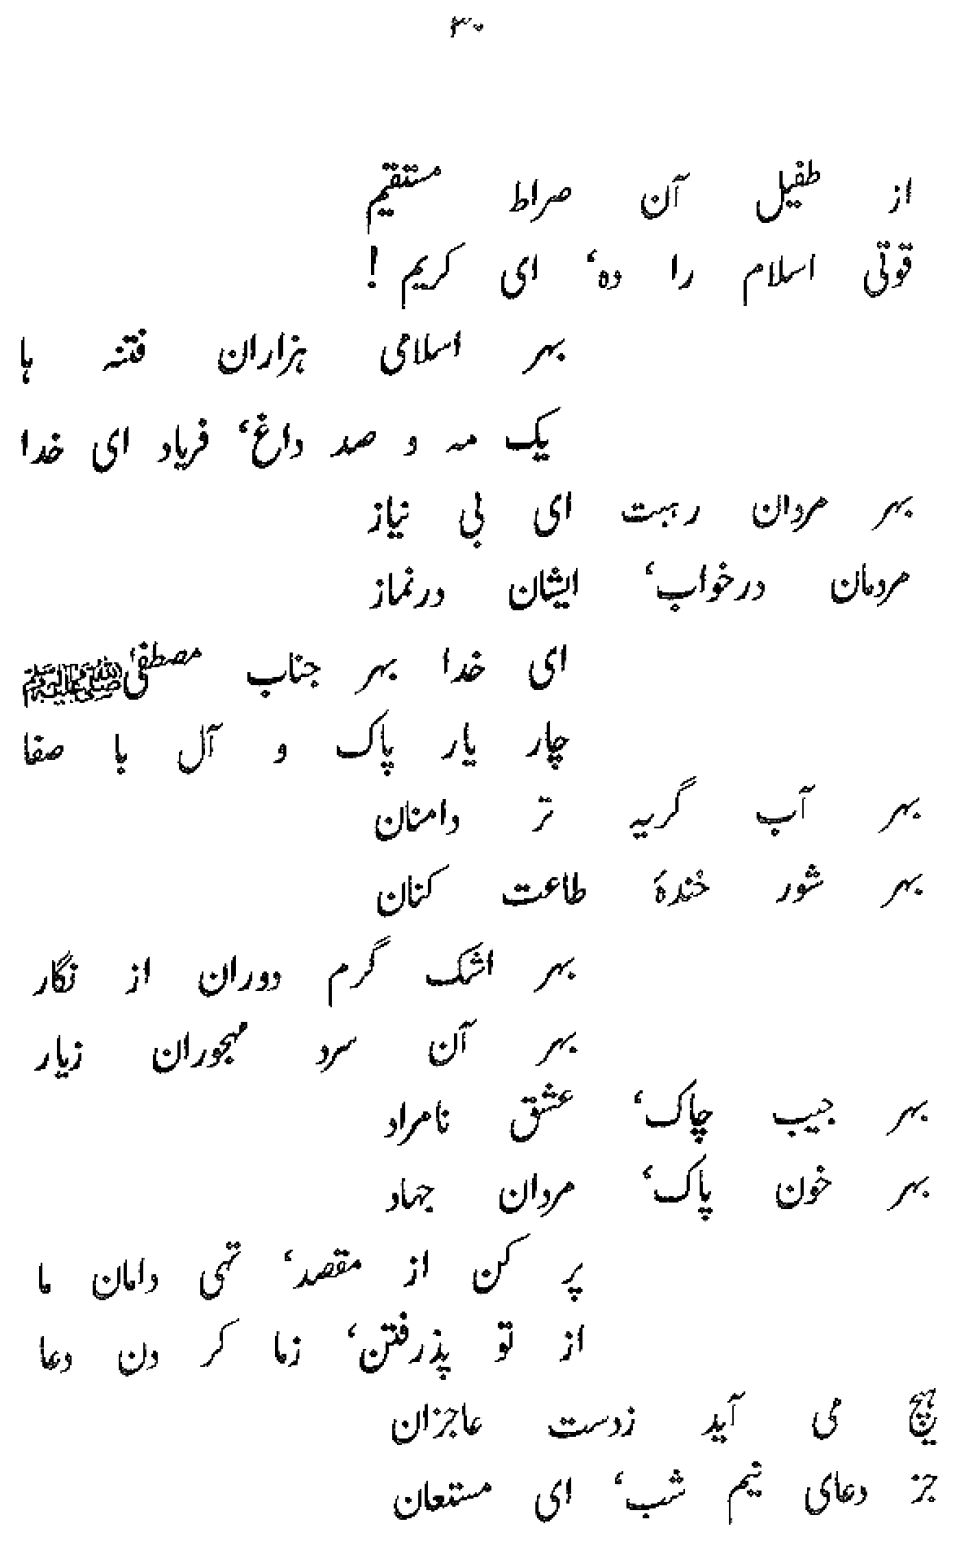 ۳۰
از طفیل آن صراط مستقیم
قوتی اسلام را ده‘ ای کریم !
بهر اسلامی هزاران فتنه ها
یک مه و صد داغ‘ فریاد ای خدا
بهر مردان رہت ای بی نیاز
مردمان درخواب‘ ایشان درنماز
ای خدا بهر جناب مصطفیٰ ﷺ
چار یار پاک و آل با صفا
بهر آب گریہ تر دامنان
بهر شور خُندۂ طاعت کنان
بهر اشک گرم دوران از نگار
بهر آن سرد مہجوران زیار
بهر جیب چاک‘ عشق نامراد
بهر خون پاک‘ مردان جہاد
پر کن از مقصد‘ تہی دامان ما
از تو پذرفتن‘ زما کر دن دعا
ہیچ می آید زدست عاجزان
جز دعای نیم شب‘ ای مستعان